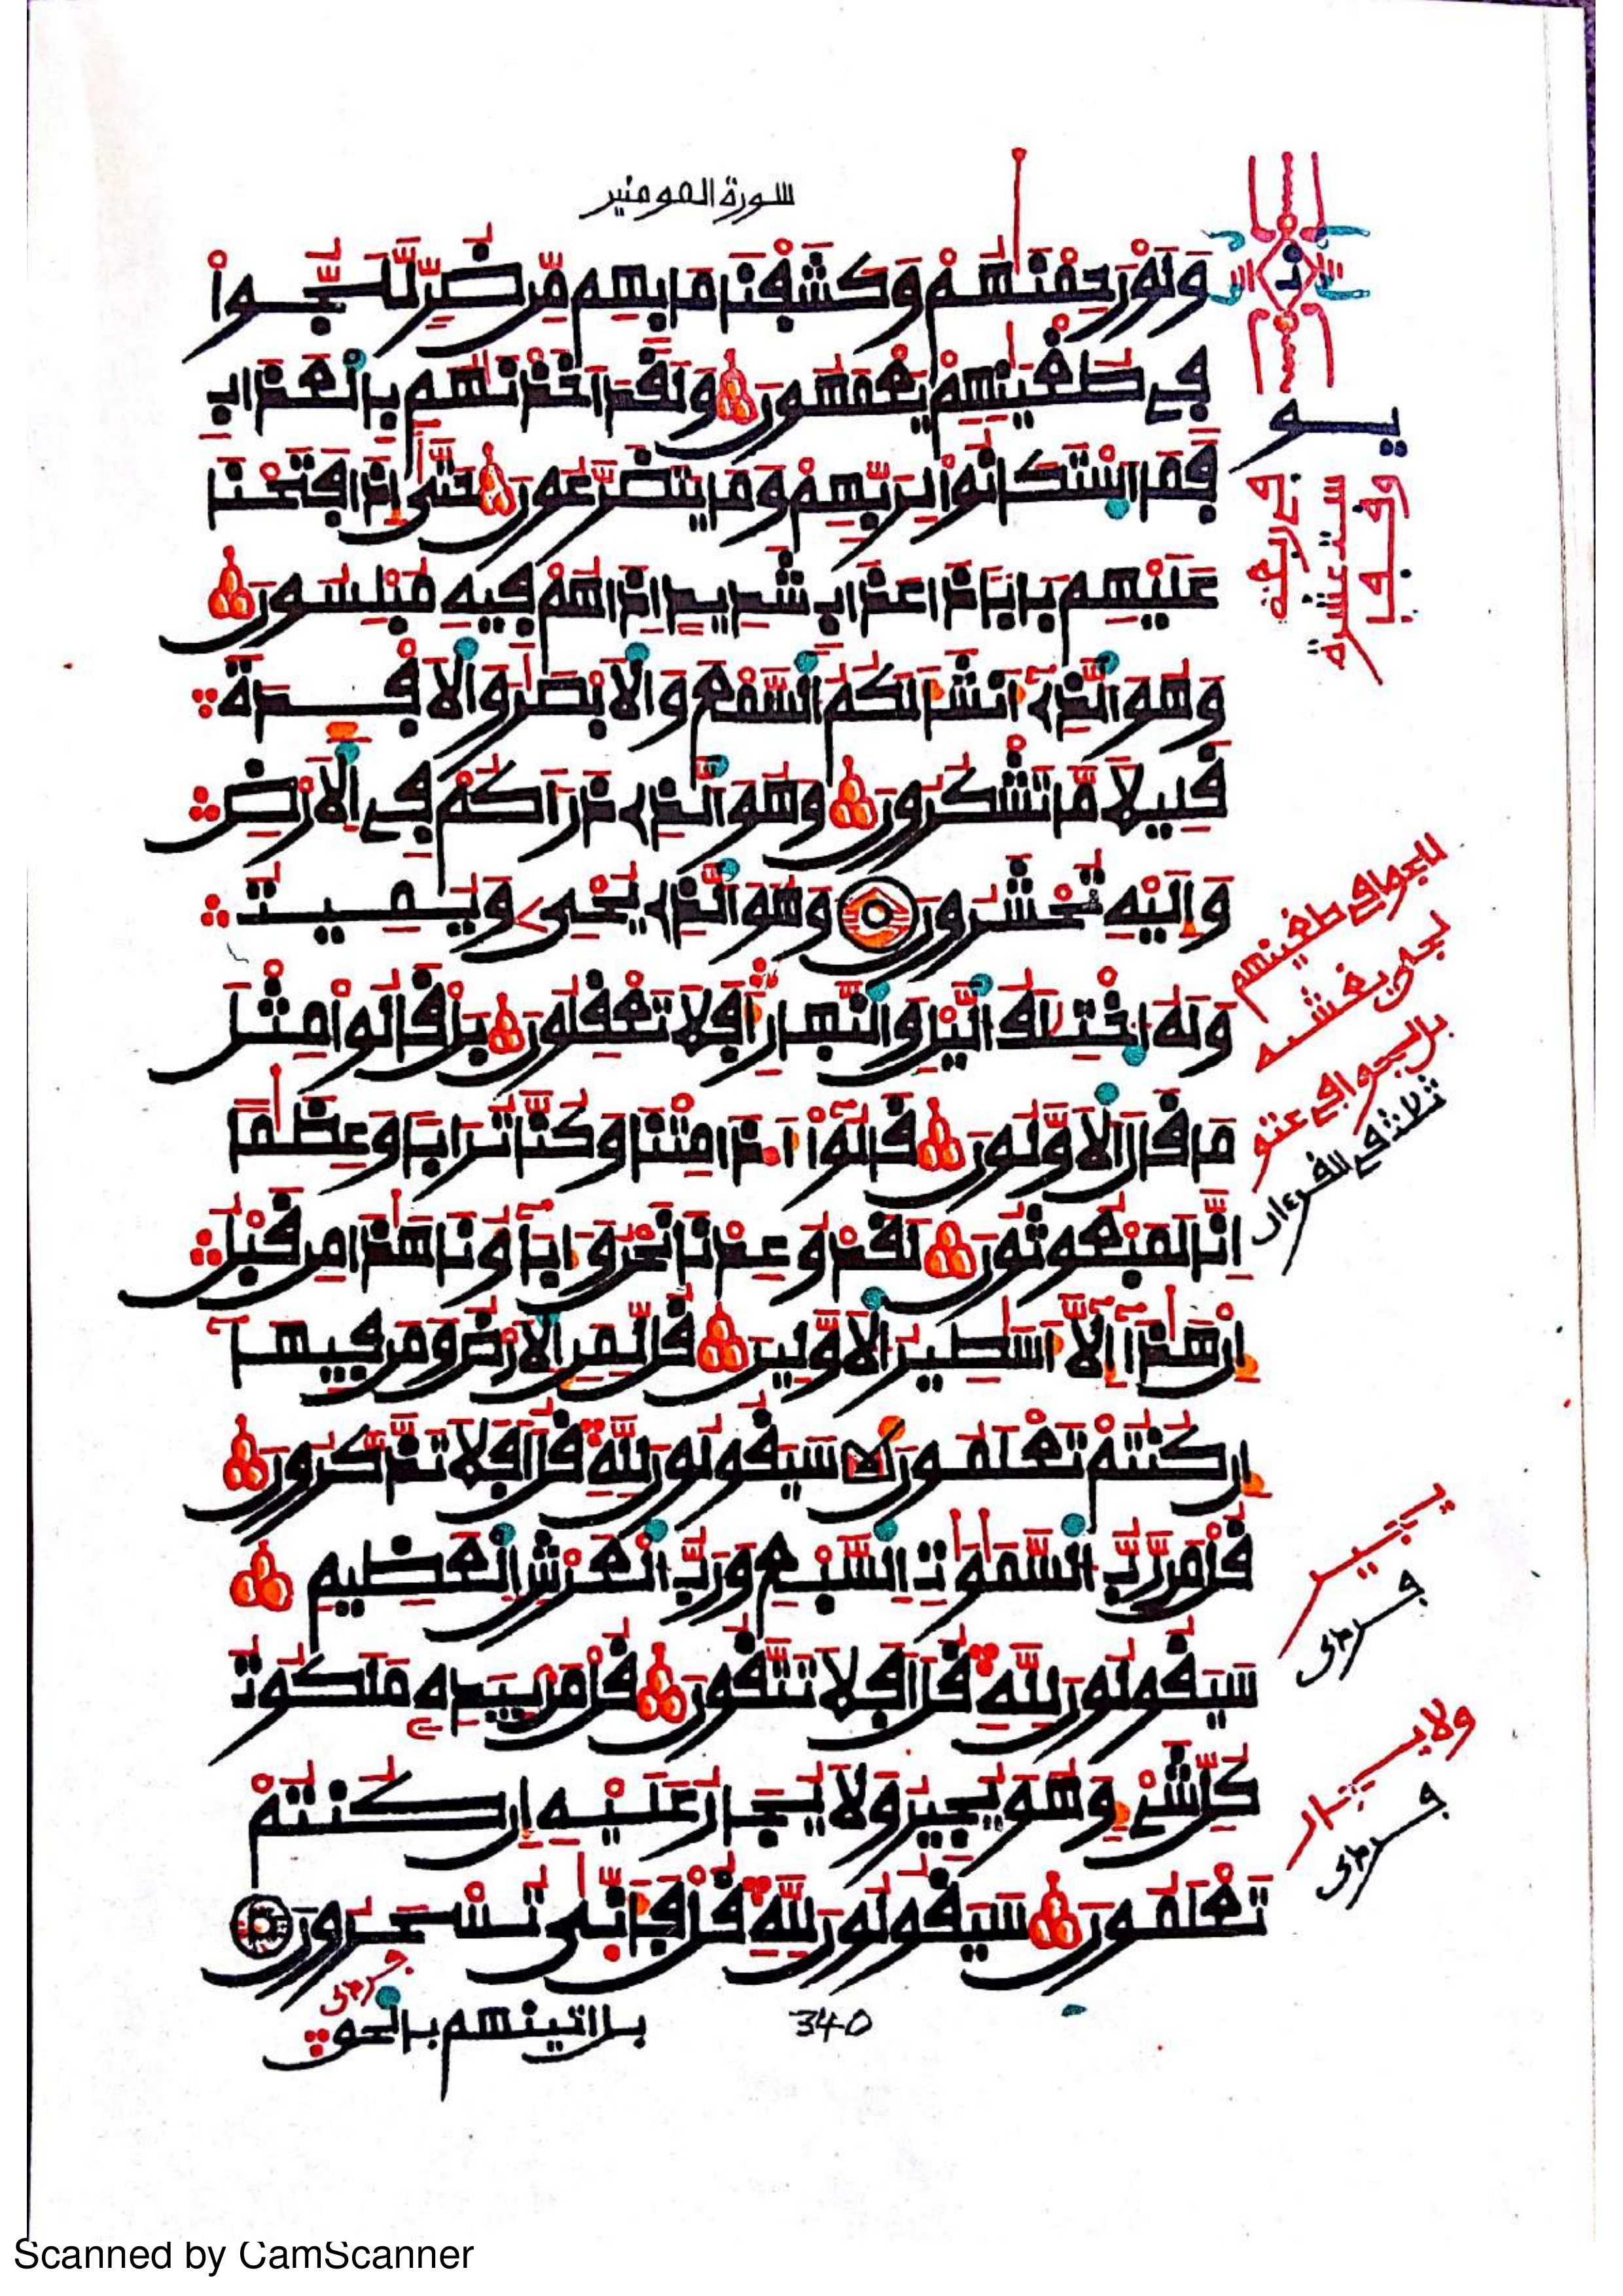 سورة المومنين
وَلَوْ رَحِمْنَٰهُمْ وَكَشَفْنَا مَا بِهِم مِّن ضُرٍّ لَّلَجُّوا۟
فِى طُغْيَٰنِهِمْ يَعْمَهُونَ وَلَقَدَ اَخَذْنَٰهُم بِالْعَذَابِ
فَمَا اَسْتَكَانُوا۟ لِرَبِّهِمْ وَمَا يَتَضَرَّعُونَ حَتَّىٰ إِذَا فَتَحْنَا
عَلَيْهِم بَابًا ذَا عَذَابٍ شَدِيدٍ اِذَا هُمْ فِيهِ مُبْلِسُونَ
وَهُوَ الَّذِى أَنشَأَ لَكُمُ السَّمْعَ وَالَابْصَٰرَ وَالَافْـِٔدَةَ
قَلِيلًا مَّا تَشْكُرُونَ وَهُوَ الَّذِى ذَرَأَكُمْ فِى الَارْضِ
وَإِلَيْهِ تُحْشَرُونَ وَهُوَ الَّذِى يُحْىِ وَيُمِيتُ
وَلَهُ اخْتِلَٰفُ الَّيْلِ وَالنَّهَارِ أَفَلَا تَعْقِلُونَ بَلْ قَالُوا۟ مِثْلَ
مَا قَالَ الَاوَّلُونَ قَالُوٓا۟ أَ۟ذَا مِتْنَا وَكُنَّا تُرَابًا وَعِظَٰمًا
اِنَّا لَمَبْعُوثُونَ لَقَدْ وُعِدْنَا نَحْنُ وَءَابَآؤُنَا هَٰذَا مِن قَبْلُ
إِنْ هَٰذَآ إِلَّآ أَسَٰطِيرُ الَاوَّلِينَ قُل لِّمَنِ الَارْضُ وَمَن فِيهَآ
إِن كُنتُمْ تَعْلَمُونَ سَيَقُولُونَ لِلَّهِ قُلَ اَفَلَا تَذَّكَّرُونَ
قُلْ مَن رَّبُّ السَّمَٰوَٰتِ السَّبْعِ وَرَبُّ الْعَرْشِ الْعَظِيمِ
سَيَقُولُونَ لِلَّهِ قُلَ اَفَلَا تَتَّقُونَ قُلْ مَن بِيَدِهِ مَلَكُوتُ
كُلِّ شَىْءٍ وَهُوَ يُجِيرُ وَلَا يُجَارُ عَلَيْهِ إِن كُنتُمْ
تَعْلَمُونَ سَيَقُولُونَ لِلَّهِ قُلْ فَأَنَّىٰ تُسْحَرُونَ
بل اتينهم بالحق
340
للجوا فى طغينهم
بل لجوا فى عتو
ثلثة فى القرءان
يجير
ولا يجار
Scanned by CamScanner